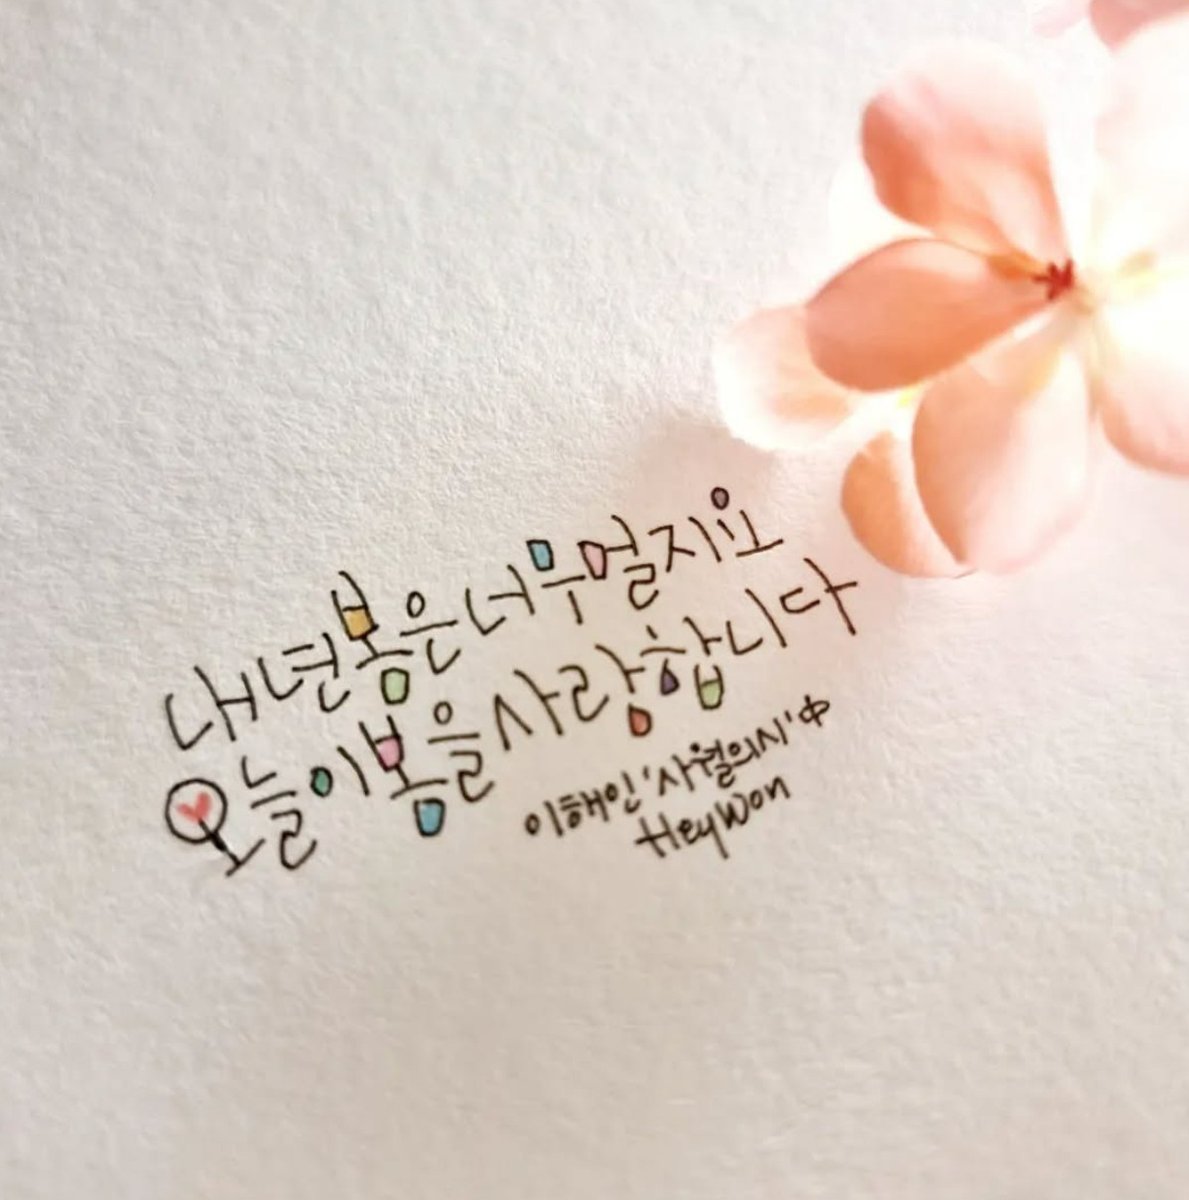 내년 봄은 너무 멀지요
오늘 이 봄을 사랑합니다
이해인 '사월의 시' 中
HeyWon